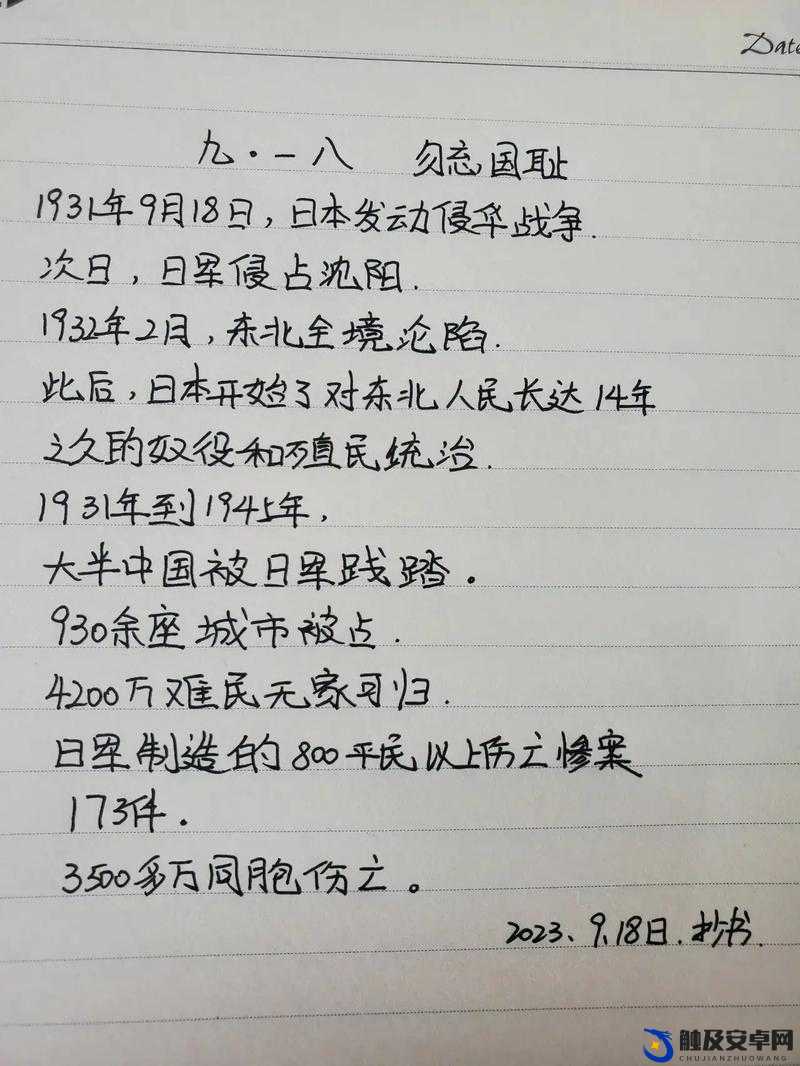 Date
九·一八 勿忘国耻
1931年9月18日,日本发动侵华战争.
次日,日军侵占沈阳.
1932年2月,东北全境沦陷.
此后,日本开始了对东北人民长达14年
之久的奴役和殖民统治.
1931年到1945年,
大半中国被日军践踏。
930余座城市被占.
4200万难民无家可归.
日军制造的800平民以上伤亡惨案
173件.
3500多万同胞伤亡。
2023、9.18日.抄书.
触及安卓网
CHUJIANZHUOWANG